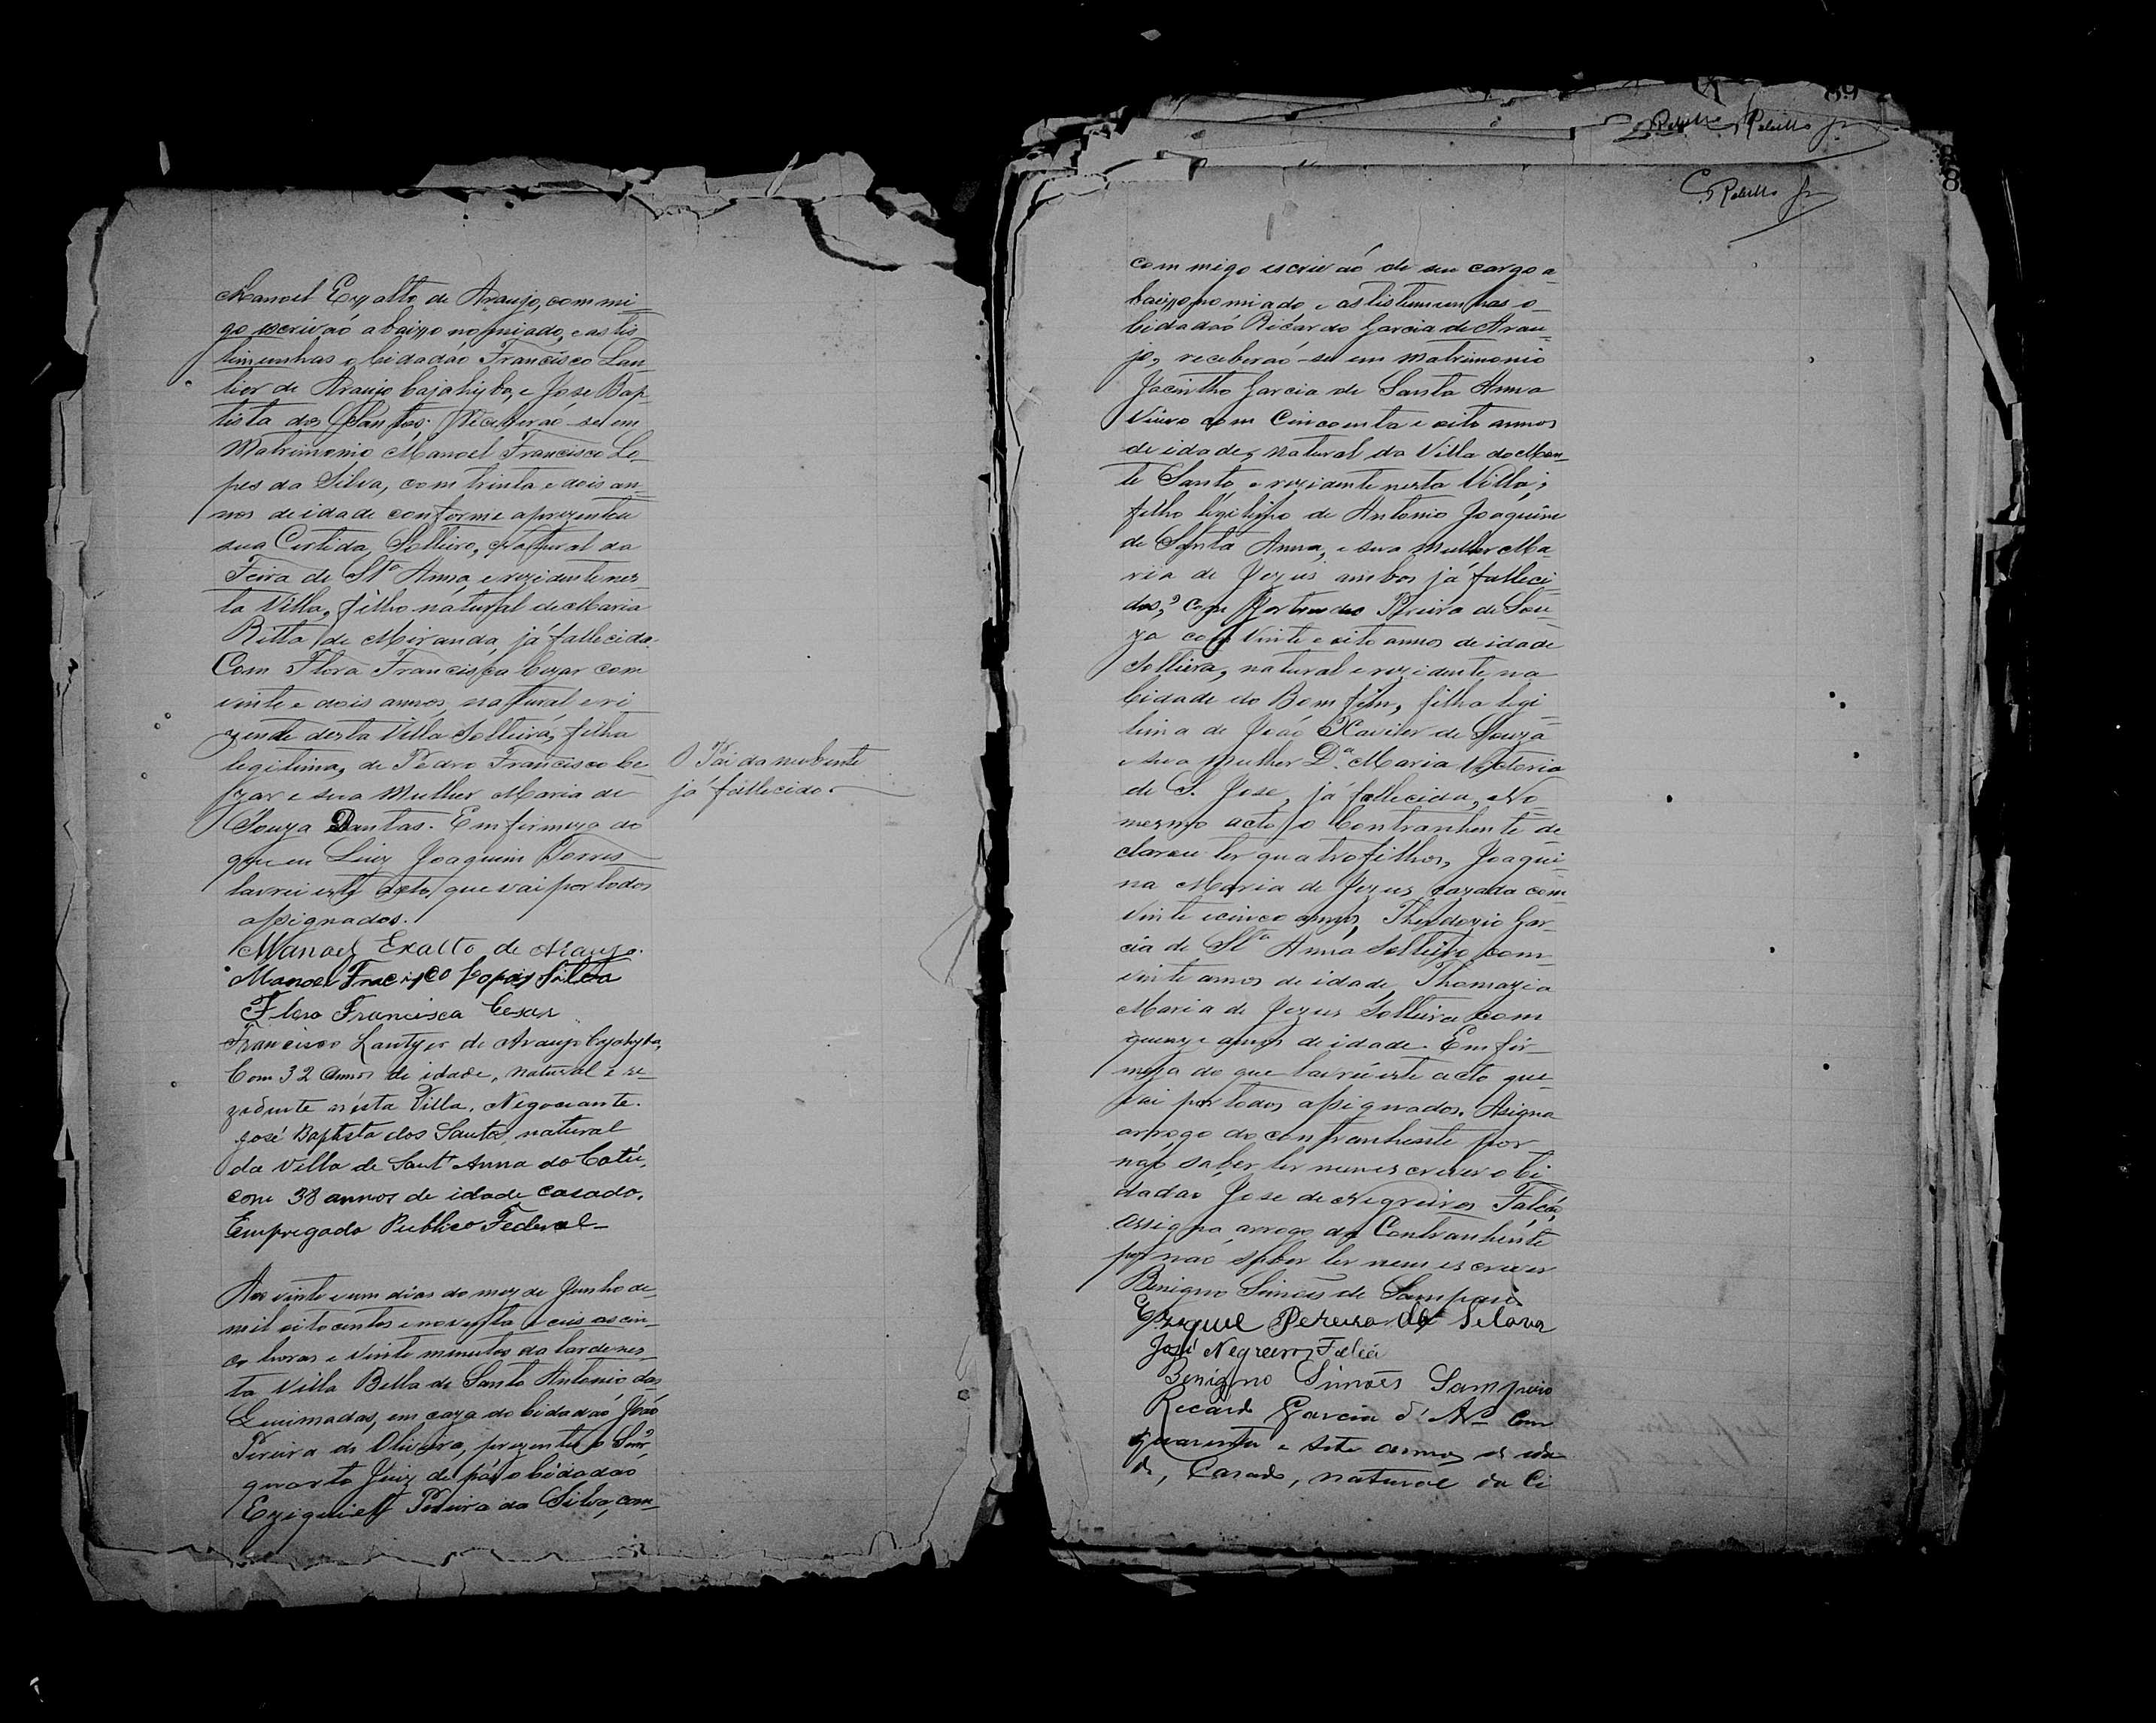 Manoel Exalto de Araujo, com mi-
go escrivaõ abaixo nomiado, e as tis-
timunhas o Cidadáo Francisco Lan-
tier de Araujo Cajahyba, e Jose Bap-
tista dos Santos; Receberaó-se em
Matrimonio Manoel Francisco Lo-
pes da Silva, com trinta e dois an-
nos de idade conforme aprezentou
sua Certida, Solteiro, Natural da
Feira de Stª Anna, e rezidente nes-
ta Villa, filho natural de Maria
Ritta de Miranda, já fallecida.
Com Flora Francisca Cezar com
vinte e dois annos, natural e ri
zende desta Villa Solteira, filha
legitima, de Pedro Francisco Ce-
zar e sua Mulher Maria de
Souza Dantas. Em firmeza do
que eu Luiz Joaquim Torres
lavrei este acto, que vai por todos
assignados.
O Pai da nubente
já fallecido
Manoel Exalto de Araujo.
Manoel Fracisco Lopes Silva
Flora Francisca Cesar
Francisco Lantyer de Araujo Cajahyba,
Com 32 annos de idade, natural e re-
zidente nésta Villa, Negociante.
José Baptista dos Santos, natural
da Villa de Sant'Anna do Catú,
com 38 annos de idade casado,
Empregado Publico Federal-
Aos vinte e um dias do mez de Junho de
mil oitocentos e noventa e ceis as cin-
co horas e vinte minutos da tarde nes-
ta Villa Bella de Santo Antonio das
Queimadas, em caza do Cidadaó Joaó
Pereira de Oliveira, prezente o
quarto Juiz de páz o Cidadaó
Eziquiell Pereira da Silva, com-
C Rabello Jr
com migo escrivaó de seu cargo a
baixo nomiado, e as tistimunhas o
Cidadaó Ricardo Garcia de Arau-
jo, receberaó-se em Matrimonio
Jacintho Garcia de Santa Anna
Viuvo com Cincoenta e oito annos
de idade, natural da Villa do Mon-
te Santo e rezidente nesta Villa;
filho legitimo de Antonio Joaquim
de Santa Anna, e sua mulher Ma-
ria de Jezus ambos já falleci-
dos, com Gertrudes Pereira de Sou-
za com vinte e oito annos de idade
Solteira, natural e rezidente na
Cidade do Bomfim, filha legi-
tima de Joaó Xavier de Souza
e sua mulher Dª Maria Victoria
de S. Jose, já fallecida, No
mesmo acto o Contranhente de
clarou ter quatro filhos, Joaqui-
na Maria de Jezus cazada com
vinte e cinco annos, Theodozio Gar-
cia de Stª Anna Solteiro com
vinte annos de idade, Thomazia
Maria de Jezus Solteira com
quenze annos de idade. Em fir-
meza do que lavrei este acto que
vai por todos assignados. Asigna
arrogo do contranhente por
naó saber ler nem escrever o Ci
dadao Jose de Negreiros Falcaó,
assigna arrogo da Contranhente
por naó saber ler nem escrever
Benigno Simões de Sampaio
Eziquiel Pereira da Silava
José Negreiros Falcá
Benigno Simões Sampaio
Ricardo Garcia d' Arº Com
quarenta e sete annos de ida
de, Casado, natural da Ci